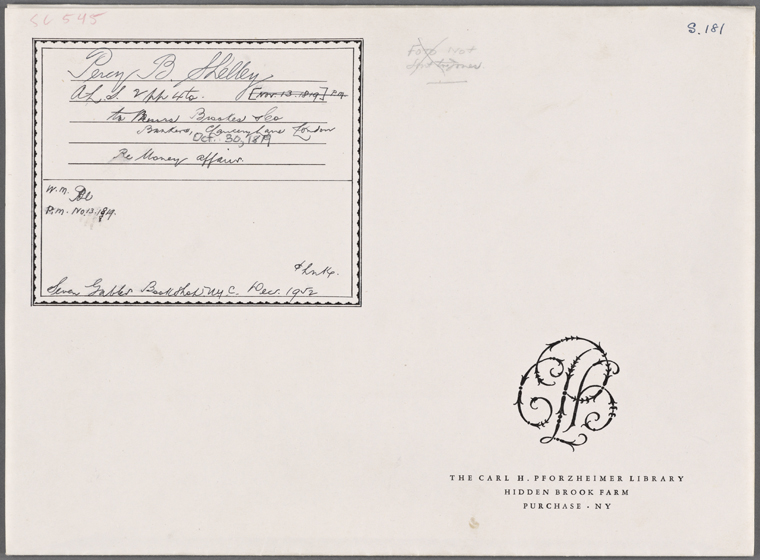 SC 545
S. 181
Percy B. Shelley
A L S. 2 pp 4to. [Nov. 13. 1819] P.M.
to Messrs Brookes & Co
Bankers, Chancery Lane London
Oct. 30, 1819
Re Money affairs
W. M.
P. M. No. 13. 1819.
Seven Gables Bookshop N.Y.C. Dec. 1952
THE CARL H. PFORZHEIMER LIBRARY
HIDDEN BROOK FARM
PURCHASE · NY